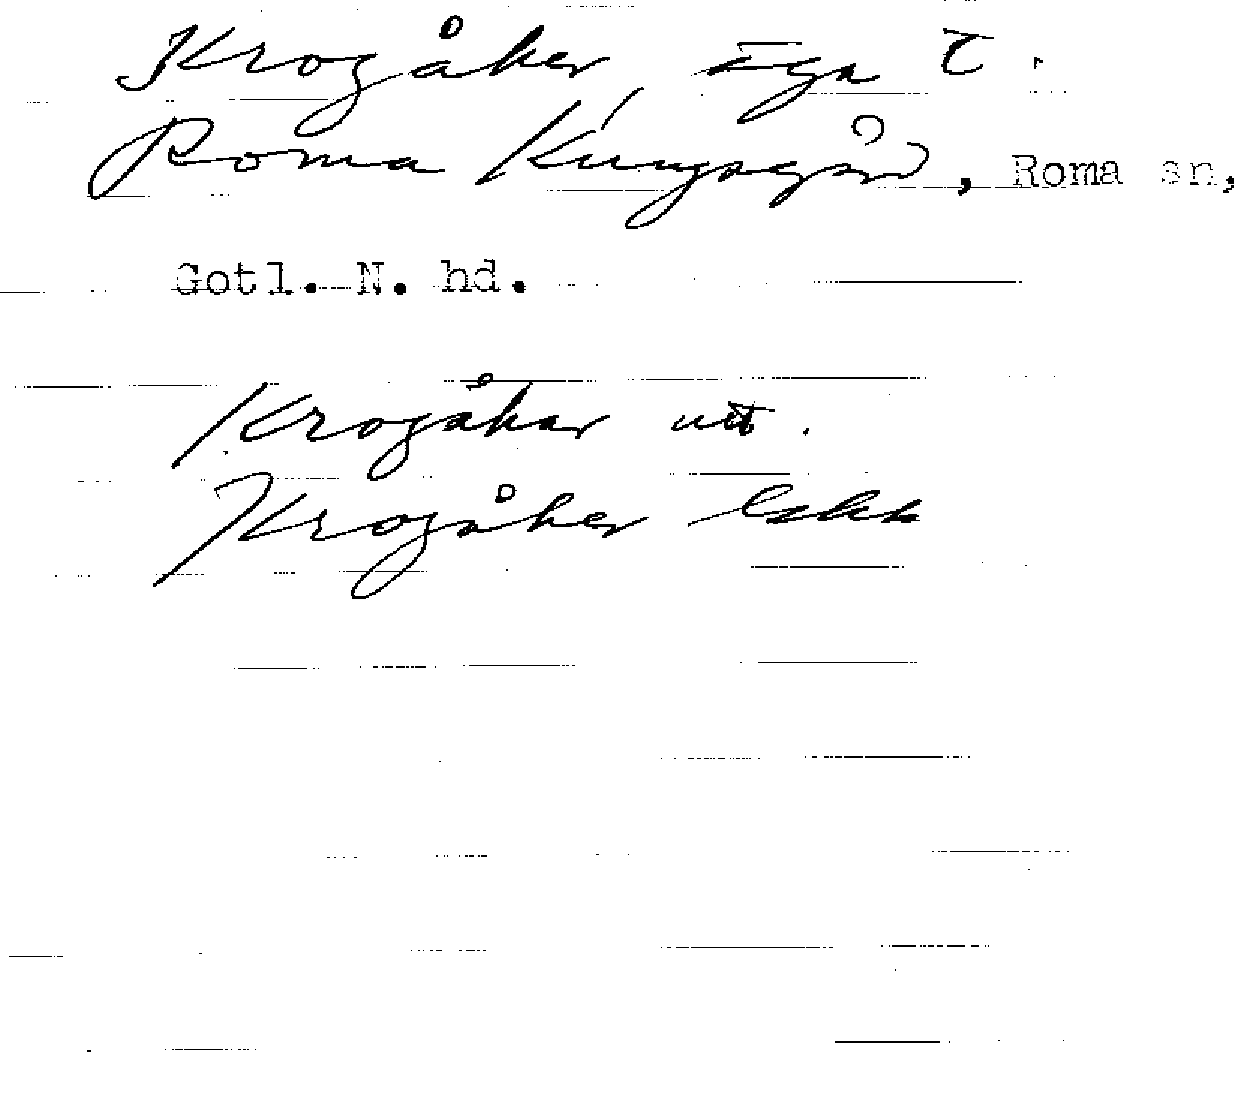 Krogåker, äga t.
Roma Kungsgård, Roma sn,
Gotl. N. hd.
Krogåkar utt.
Krogåker Ekk